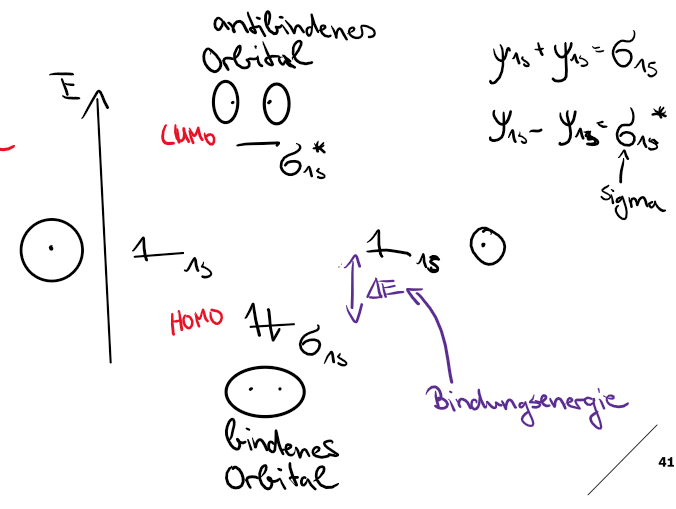 antibindenes
Orbital
ψ1s + ψ1s = σ1s
E
LUMO
σ1s*
ψ1s - ψ1s = σ1s*
sigma
1s
1s
ΔE
HOMO
σ1s
Bindungsenergie
bindenes
Orbital
41